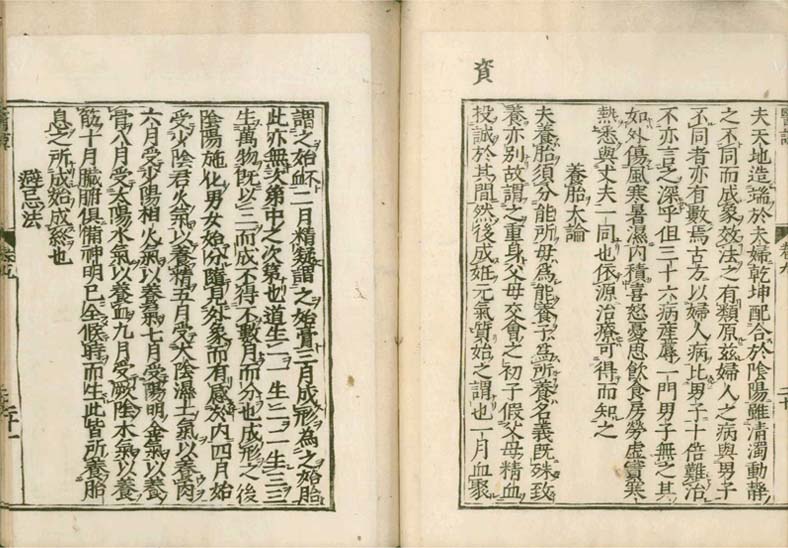 資
夫天地造端於夫婦乾坤配合於陰陽雖清濁動靜
之不同而成象效法之有類原茲婦人之病與男子
不同者亦有數焉古方以婦人病比男子十倍難治
不亦言之深乎但三十六病產蓐一門男子無之其
如外傷風寒暑濕内積喜怒憂思飲食房勞虛實寒
熱悉與丈夫一同也依源治療可得而知之
養胎大論
夫養胎須分能所母為能養子為所養名義既殊致
養亦別故謂之重身父母交會之初子假父母精血
投誠於其間然後成姙元氣質始之謂也一月血聚
謂之始胚二月精凝謂之始膏三月成形為之始胎
此亦無次第中之次第也道生一一生二二生三三
生萬物既以三而成不得不數月而分也成形之後
陰陽施化男女始分隨見外象而有感於内四月始
受少陰君火氣以養精五月受太陰濕土氣以養肉
六月受少陽相火氣以養氣七月受陽明金氣以養
骨八月受太陽水氣以養血九月受厥陰木氣以養
筋十月臟腑俱備神明已全候時而生此皆所養胎
息之所成始成終也
避忌法